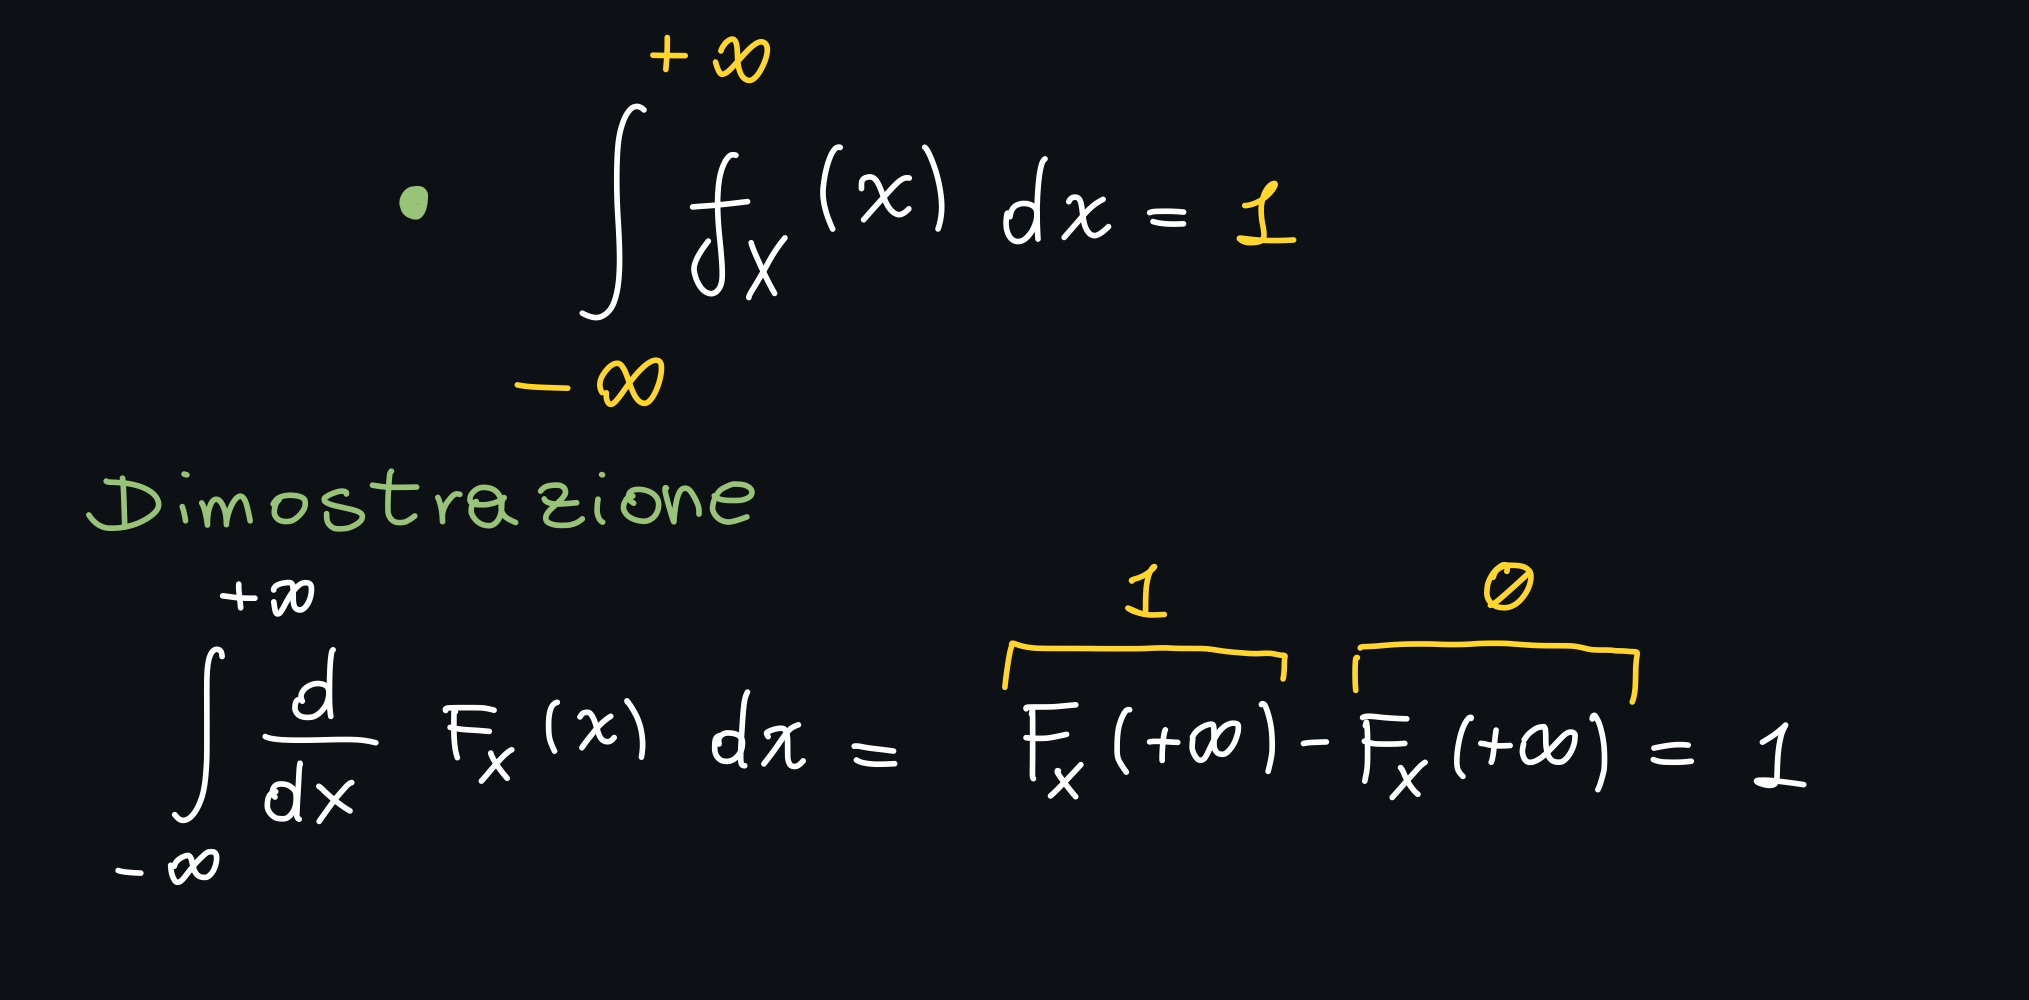 • ∫_{-∞}^{+∞} f_X (x) dx = 1
Dimostrazione
∫_{-∞}^{+∞} d/dx F_X (x) dx = F_X (+∞) [1] - F_X (+∞) [0] = 1